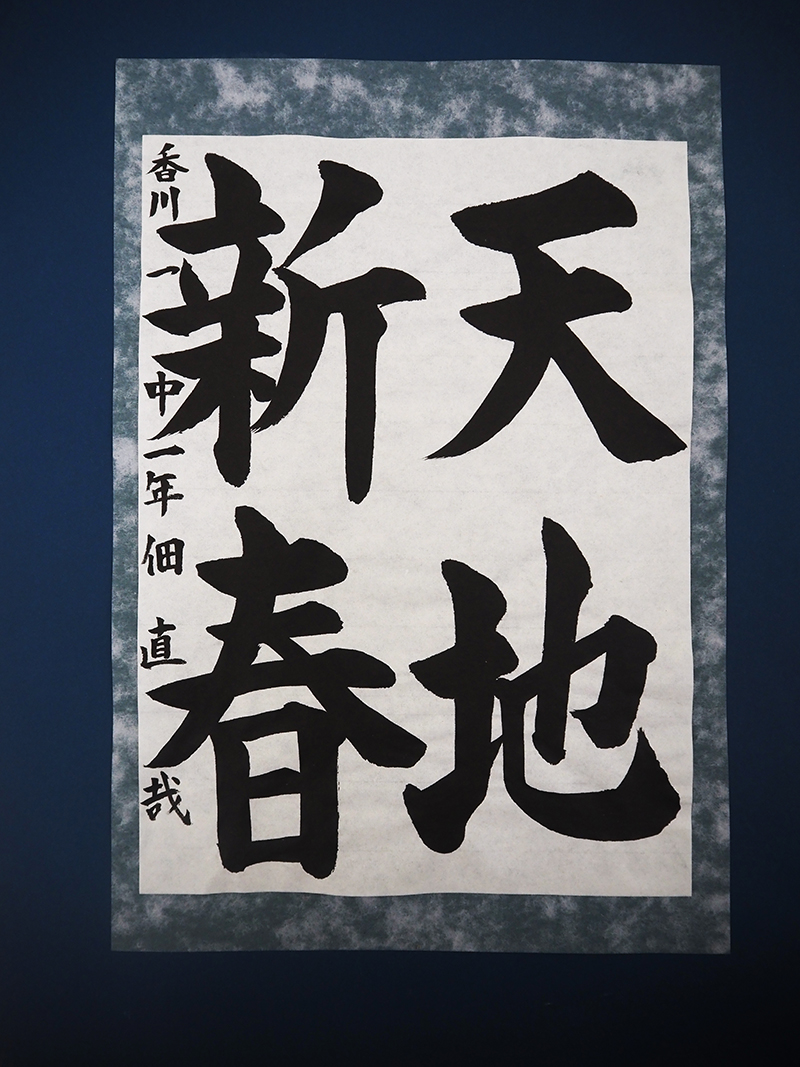 天地
新春
香川一中一年佃直哉